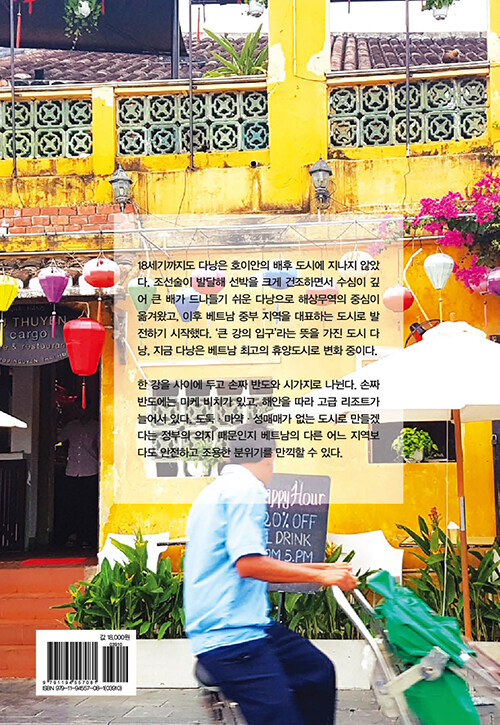 18세기까지도 다낭은 호이안의 배후 도시에 지나지 않았
다. 조선술이 발달해 선박을 크게 건조하면서 수심이 깊
어 큰 배가 드나들기 쉬운 다낭으로 해상무역의 중심이
옮겨왔고, 이후 베트남 중부 지역을 대표하는 도시로 발
전하기 시작했다. ‘큰 강의 입구’라는 뜻을 가진 도시 다
낭, 지금 다낭은 베트남 최고의 휴양도시로 변화 중이다.
한 강을 사이에 두고 손짜 반도와 시가지로 나뉜다. 손짜
반도에는 미케 비치가 있고, 해안을 따라 고급 리조트가
늘어서 있다. 도둑, 마약, 성매매가 없는 도시로 만들겠
다는 정부의 의지 때문인지 베트남의 다른 어느 지역보
다도 안전하고 조용한 분위기를 만끽할 수 있다.
THUYEN
cargo
appy Hour
20% OFF
L DRINK
PM 5.PM
값 18,000원
03910
9 791194 557081
ISBN 979-11-94557-08-1(03910)